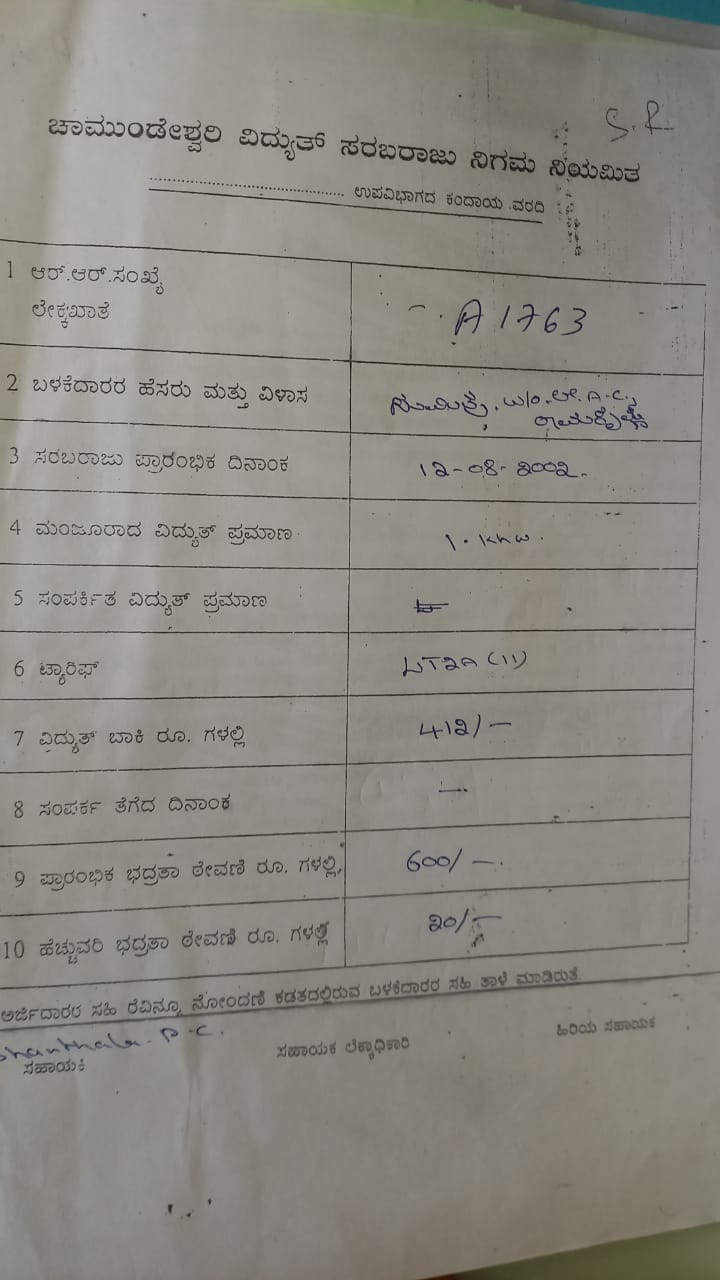 S.R
ಚಾಮುಂಡೇಶ್ವರಿ ವಿದ್ಯುತ್ ಸರಬರಾಜು ನಿಗಮ ನಿಯಮಿತ
........................................ ಉಪವಿಭಾಗದ ಕಂದಾಯ ವರದಿ
1 ಆರ್.ಆರ್.ಸಂಖ್ಯೆ
ಲೇಕ್ಕಖಾತೆ
A 1763
2 ಬಳಕೆದಾರರ ಹೆಸರು ಮತ್ತು ವಿಳಾಸ
ಸುಮಿತ್ರ, W/o. ಲೇ. A.C.,
3 ಸರಬರಾಜು ಪ್ರಾರಂಭಿಕ ದಿನಾಂಕ
12-08-2002.
4 ಮಂಜೂರಾದ ವಿದ್ಯುತ್ ಪ್ರಮಾಣ
5 ಸಂಪರ್ಕಿತ ವಿದ್ಯುತ್ ಪ್ರಮಾಣ
6 ಟ್ಯಾರಿಫ್
LT2A (11)
7 ವಿದ್ಯುತ್ ಬಾಕಿ ರೂ. ಗಳಲ್ಲಿ
412/-
8 ಸಂಪರ್ಕ ತೆಗೆದ ದಿನಾಂಕ
-
9 ಪ್ರಾರಂಭಿಕ ಭದ್ರತಾ ಠೇವಣಿ ರೂ. ಗಳಲ್ಲಿ,
600/-.
10 ಹೆಚ್ಚುವರಿ ಭದ್ರತಾ ಠೇವಣಿ ರೂ. ಗಳಲ್ಲಿ
20/-
ಅರ್ಜಿದಾರರ ಸಹಿ ರೆವಿನ್ಯೂ ನೋಂದಣಿ ಕಡತದಲ್ಲಿರುವ ಬಳಕೆದಾರರ ಸಹಿ ತಾಳೆ ಮಾಡಿರುತೆ
Shanthala. P. C.
ಸಹಾಯಕಿ ಸಹಾಯಕ ಲೆಕ್ಕಾಧಿಕಾರಿ ಹಿರಿಯ ಸಹಾಯಕ